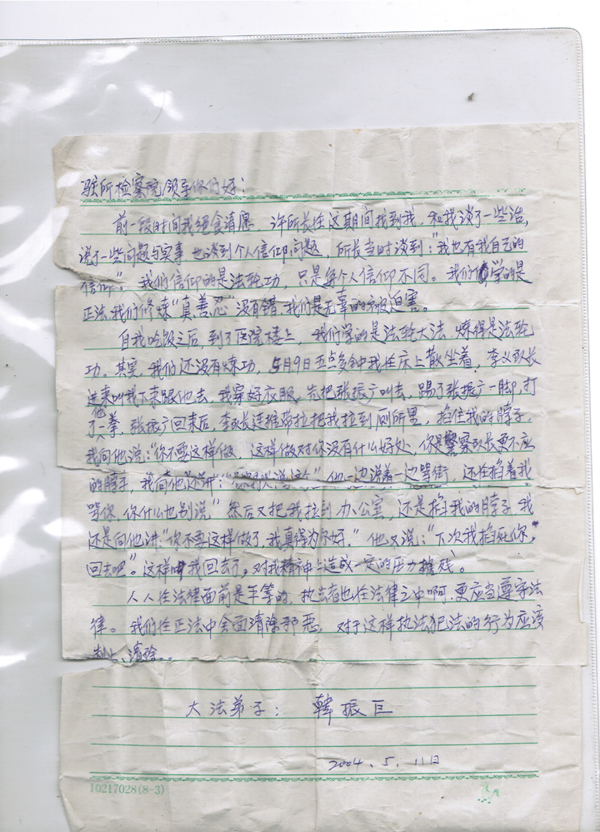 驻所检察院领导你们好：
前一段时间我绝食请愿，许所长在这期间找到我，和我谈了一些治，
说了一些问题与实事 也谈到个人信仰问题，所长当时谈到："我也有我自己的
信仰"，我们信仰的是法轮功，只是每个人信仰不同。我们学的是
正法，我们修炼"真善忍"没有错，我们是无辜的被迫害。
自我吃饭之后，到了医院楼上，我们学的是法轮大法，炼得是法轮
功，其实，我们还没有炼功，5月9日五点多钟我在床上散坐着，李队长
进来叫我下来跟他去，我穿好衣服，先把张振广叫去，踢了张振广一脚，打
了他一拳，张振广回来后，李队长连推带拉把我拉到厕所里，掐住我的脖子，
我向他说："你不要这样做，这样做对你没有什么好处，你是警察队长更不应
的脖子，我向他还讲： 他一边说着一边骂街，还在掐着我
骂你，你什么也别说"然后又把我拉到办公室，还是掐我的脖子，我
还是向他讲"你不要这样做了，我真得为你好。"他又说："下次我掐死你，
回去吧"。这样我回去了，对我精神上造成一定的压力
人人在法律面前是平等的，执法者也在法律之中啊，更应当遵守法
律。我们在正法中全面清除邪恶，对于这样执法犯法的行为应该
制止，清除。
大法弟子：韩振巨
2004.5.11日
10217028(8-3)